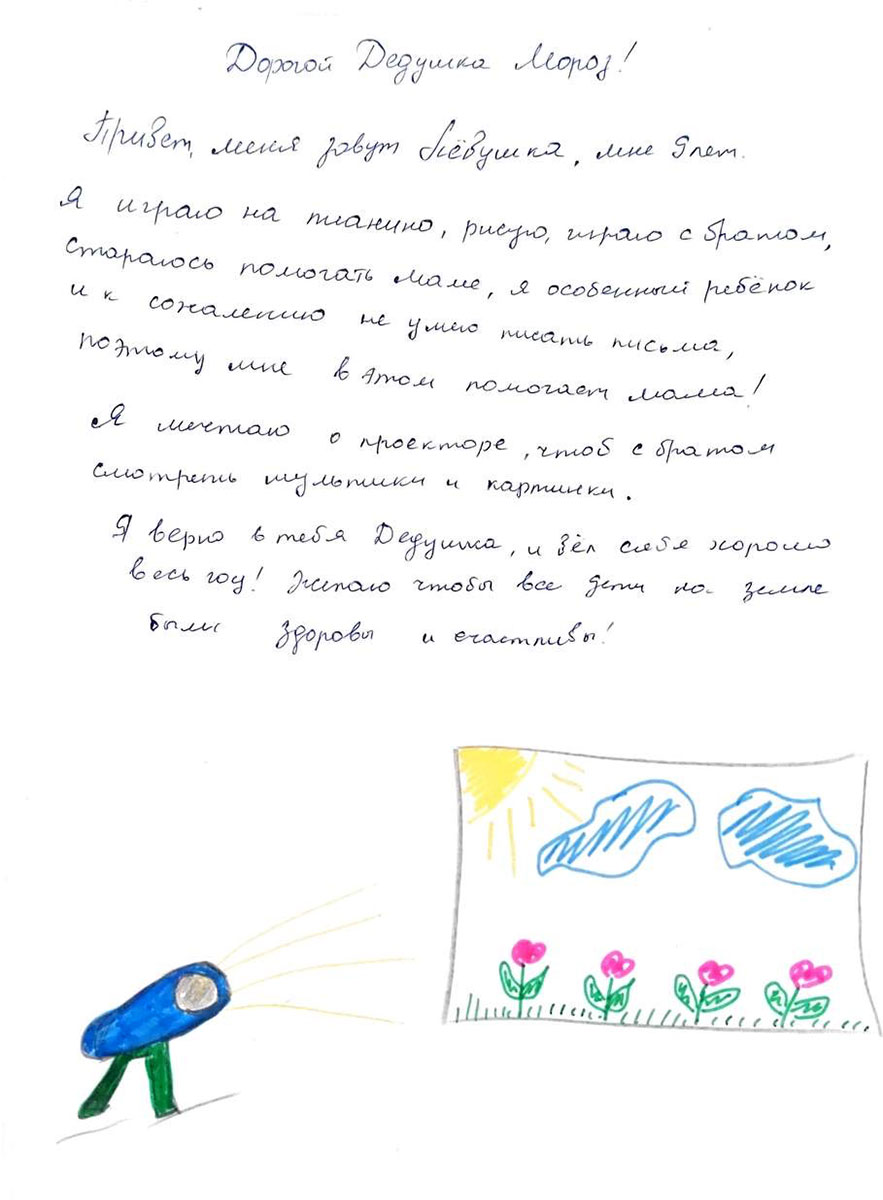 Дорогой Дедушка Мороз!
Привет, меня зовут Лёвушка, мне 9 лет.
Я играю на пианино, рисую, играю с братом,
стараюсь помогать маме, я особенный ребёнок
и к сожалению не умею писать письма,
поэтому мне в этом помогает мама!
Я мечтаю о проекторе, чтоб с братом
смотреть мультики и картинки.
Я верю в тебя Дедушка, и вёл себя хорошо
весь год! Желаю чтобы все дети на земле
были здоровы и счастливы!